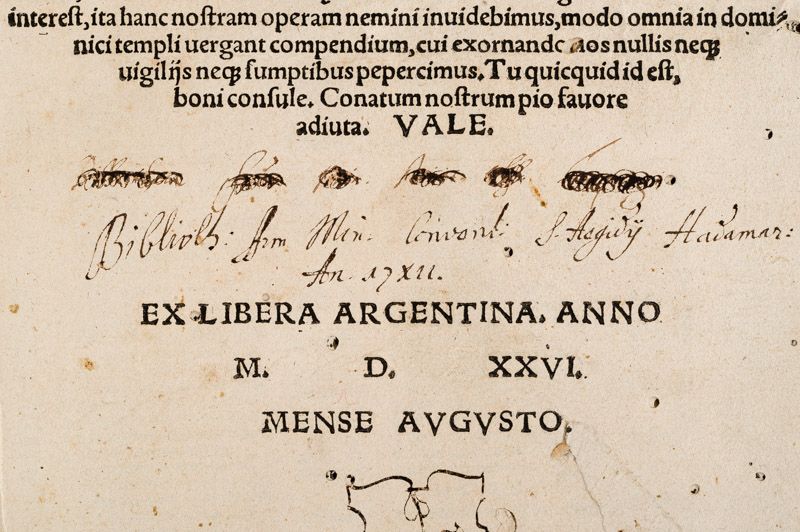 interest, ita hanc nostram operam nemini inuidebimus, modo omnia in domi-
nici templi uergant compendium, cui exornando nos nullis neqꝫ
uigilijs neqꝫ sumptibus pepercimus. Tu quicquid id est,
boni consule. Conatum nostrum pio fauore
adiuta. VALE.
Biblioth: Frm Min. Convent: S. Aegidij Hadamar:
An. 17XII.
EX LIBERA ARGENTINA. ANNO
M. D. XXVI.
MENSE AVGVSTO.